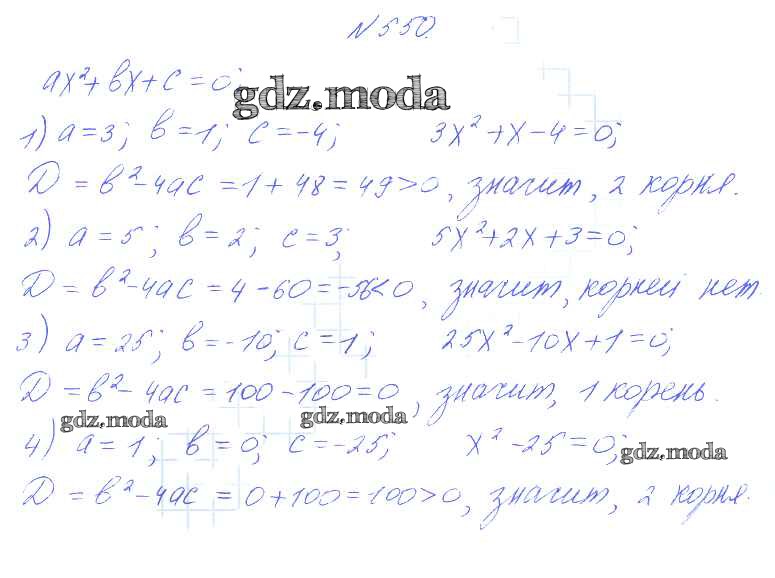 №550.
ax²+bx+c=0;
gdz.moda
1) a=3; b=1; c=-4; 3x²+x-4=0;
D=b²-4ac=1+48=49>0, значит, 2 корня.
2) a=5; b=2; c=3; 5x²+2x+3=0;
D=b²-4ac=4-60=-56<0, значит, корней нет.
3) a=25; b=-10; c=1; 25x²-10x+1=0;
D=b²-4ac=100-100=0, значит, 1 корень.
gdz.moda gdz.moda
4) a=1; b=0; c=-25; x²-25=0;
gdz.moda
D=b²-4ac=0+100=100>0, значит, 2 корня.